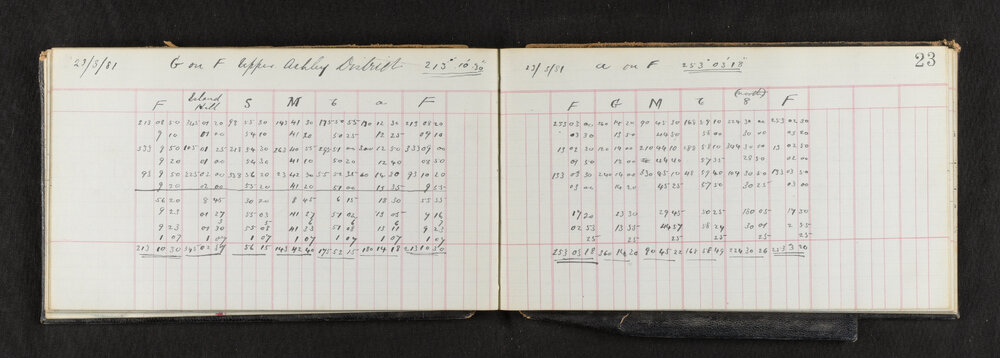 23/3/81 G on F Upper Ashley District 213° 10' 30"
F Island Hill S M G a F
213 08 50 345 01 20 98 55 30 143 41 30 175 52 55 180 12 30 213 08 20
9 10 01 00 54 10 41 30 50 25 12 25 09 10
333 9 50 105 01 25 218 54 30 263 40 55 295 51 00 300 12 50 333 09 00
9 20 01 00 54 30 41 10 50 20 12 40 08 50
93 9 50 225 02 00 338 56 20 23 42 30 55 52 35 60 14 30 93 10 20
9 20 02 00 55 20 41 20 51 00 13 35 9 55
56 20 8 45 30 20 8 45 6 15 18 30 55 35
9 23 01 27 55 03 41 27 51 02 13 05 9 16
9 23 01 30 55 08 41 33 51 08 13 11 9 23
1 07 1 07 1 07 1 07 1 07 1 07 1 07
213 10 30 345 02 37 56 15 143 42 40 175 52 15 180 14 18 213 10 30
23/3/81 a on F 253° 03' 18" 23
F G M C (north) 8 F
253 03 00 360 14 20 90 45 30 168 59 10 224 30 00 253 02 30
03 30 13 50 44 30 58 00 30 00 03 20
13 02 30 120 14 00 210 44 10 288 58 10 344 30 00 13 02 50
02 50 12 00 44 40 57 35 28 50 02 00
133 03 30 240 14 00 330 45 10 48 59 40 104 30 50 133 03 50
03 00 14 20 45 25 57 50 30 25 03 00
17 20 13 30 29 45 50 25 180 05 17 30
02 53 13 55 44 57 58 24 30 01 2 55
25 25 25 25 25 25
253 03 18 360 14 20 90 45 22 168 58 49 224 30 26 253 3 20